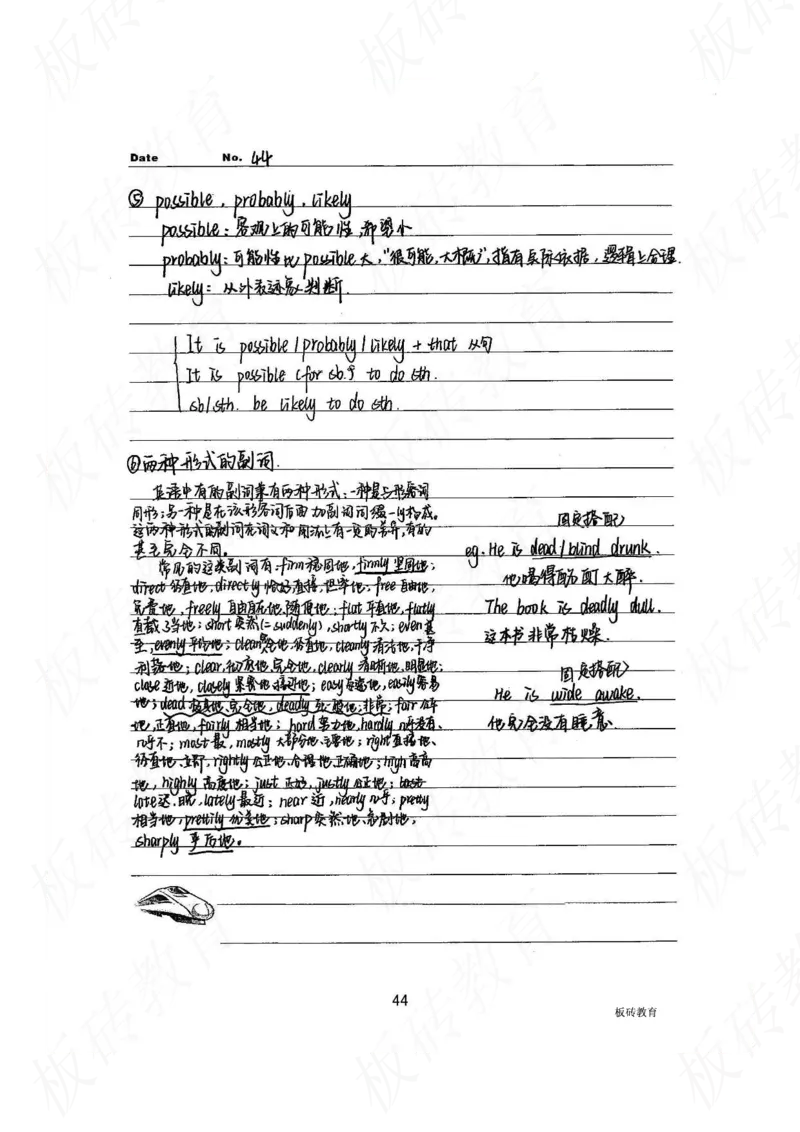 Date No. 44
⑤ possible, probably, likely
possible: 客观上的可能性, 希望小
probably: 可能性比possible大, "很可能, 大概", 指有实际依据, 逻辑上合理.
likely: 从外表迹象判断.
It is possible / probably / likely + that 从句
It is possible (for sb.) to do sth.
sb/sth. be likely to do sth.
⑥ 两种形式的副词.
英语中有的副词兼有两种形式: 一种是与形容词
同形; 另一种是在该形容词后面加副词词缀-ly构成。
这两种形式的副词在词义和用法上有一定的差异, 有的
甚至完全不同。
常见的这类副词有: firm稳固地, firmly坚固地;
direct 径直地, directly 恰好直接, 坦率地; free 自由地,
免费地, freely 自由自在地, 随便地; flat 平直地, flatly
直截了当地; short 突然(= suddenly), shortly 不久; even 甚
至, evenly 平均地; clean 完全地, 径直地, cleanly 清洁地, 干净
利落地; clear, 彻底地, 完全地, clearly 清晰地, 明显地;
close 近地, closely 紧密地, 接近地; easy 容易地, easily 容易
地; dead 极其地, 完全地, deadly 死一般地, 非常; fair 公平
地, 正直地, fairly 相当地; hard 努力地, hardly 几乎没有、
几乎不; most 最, mostly 大部分地、主要地; right 直接地、
径直地、立即, rightly 公正地、合理地、正确地; high 高高
地, highly 高度地; just 正好, justly 公正地;
late 迟、晚, lately 最近; near 近, nearly 几乎; pretty
相当地, prettily 优美地; sharp 突然地、急剧地,
sharply 事后地。
固定搭配
eg. He is dead / blind drunk.
他喝得酩酊大醉.
The book is deadly dull.
这本书非常枯燥.
固定搭配
He is wide awake.
他完全没有睡意.
44
板砖教育